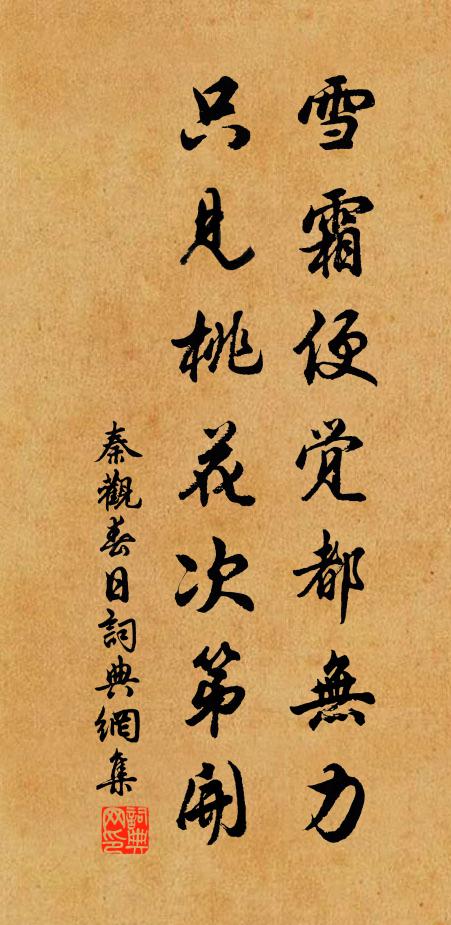 雪霜便觉都無力
只見桃花次第開
秦觀春日詞典網集
詞典网印